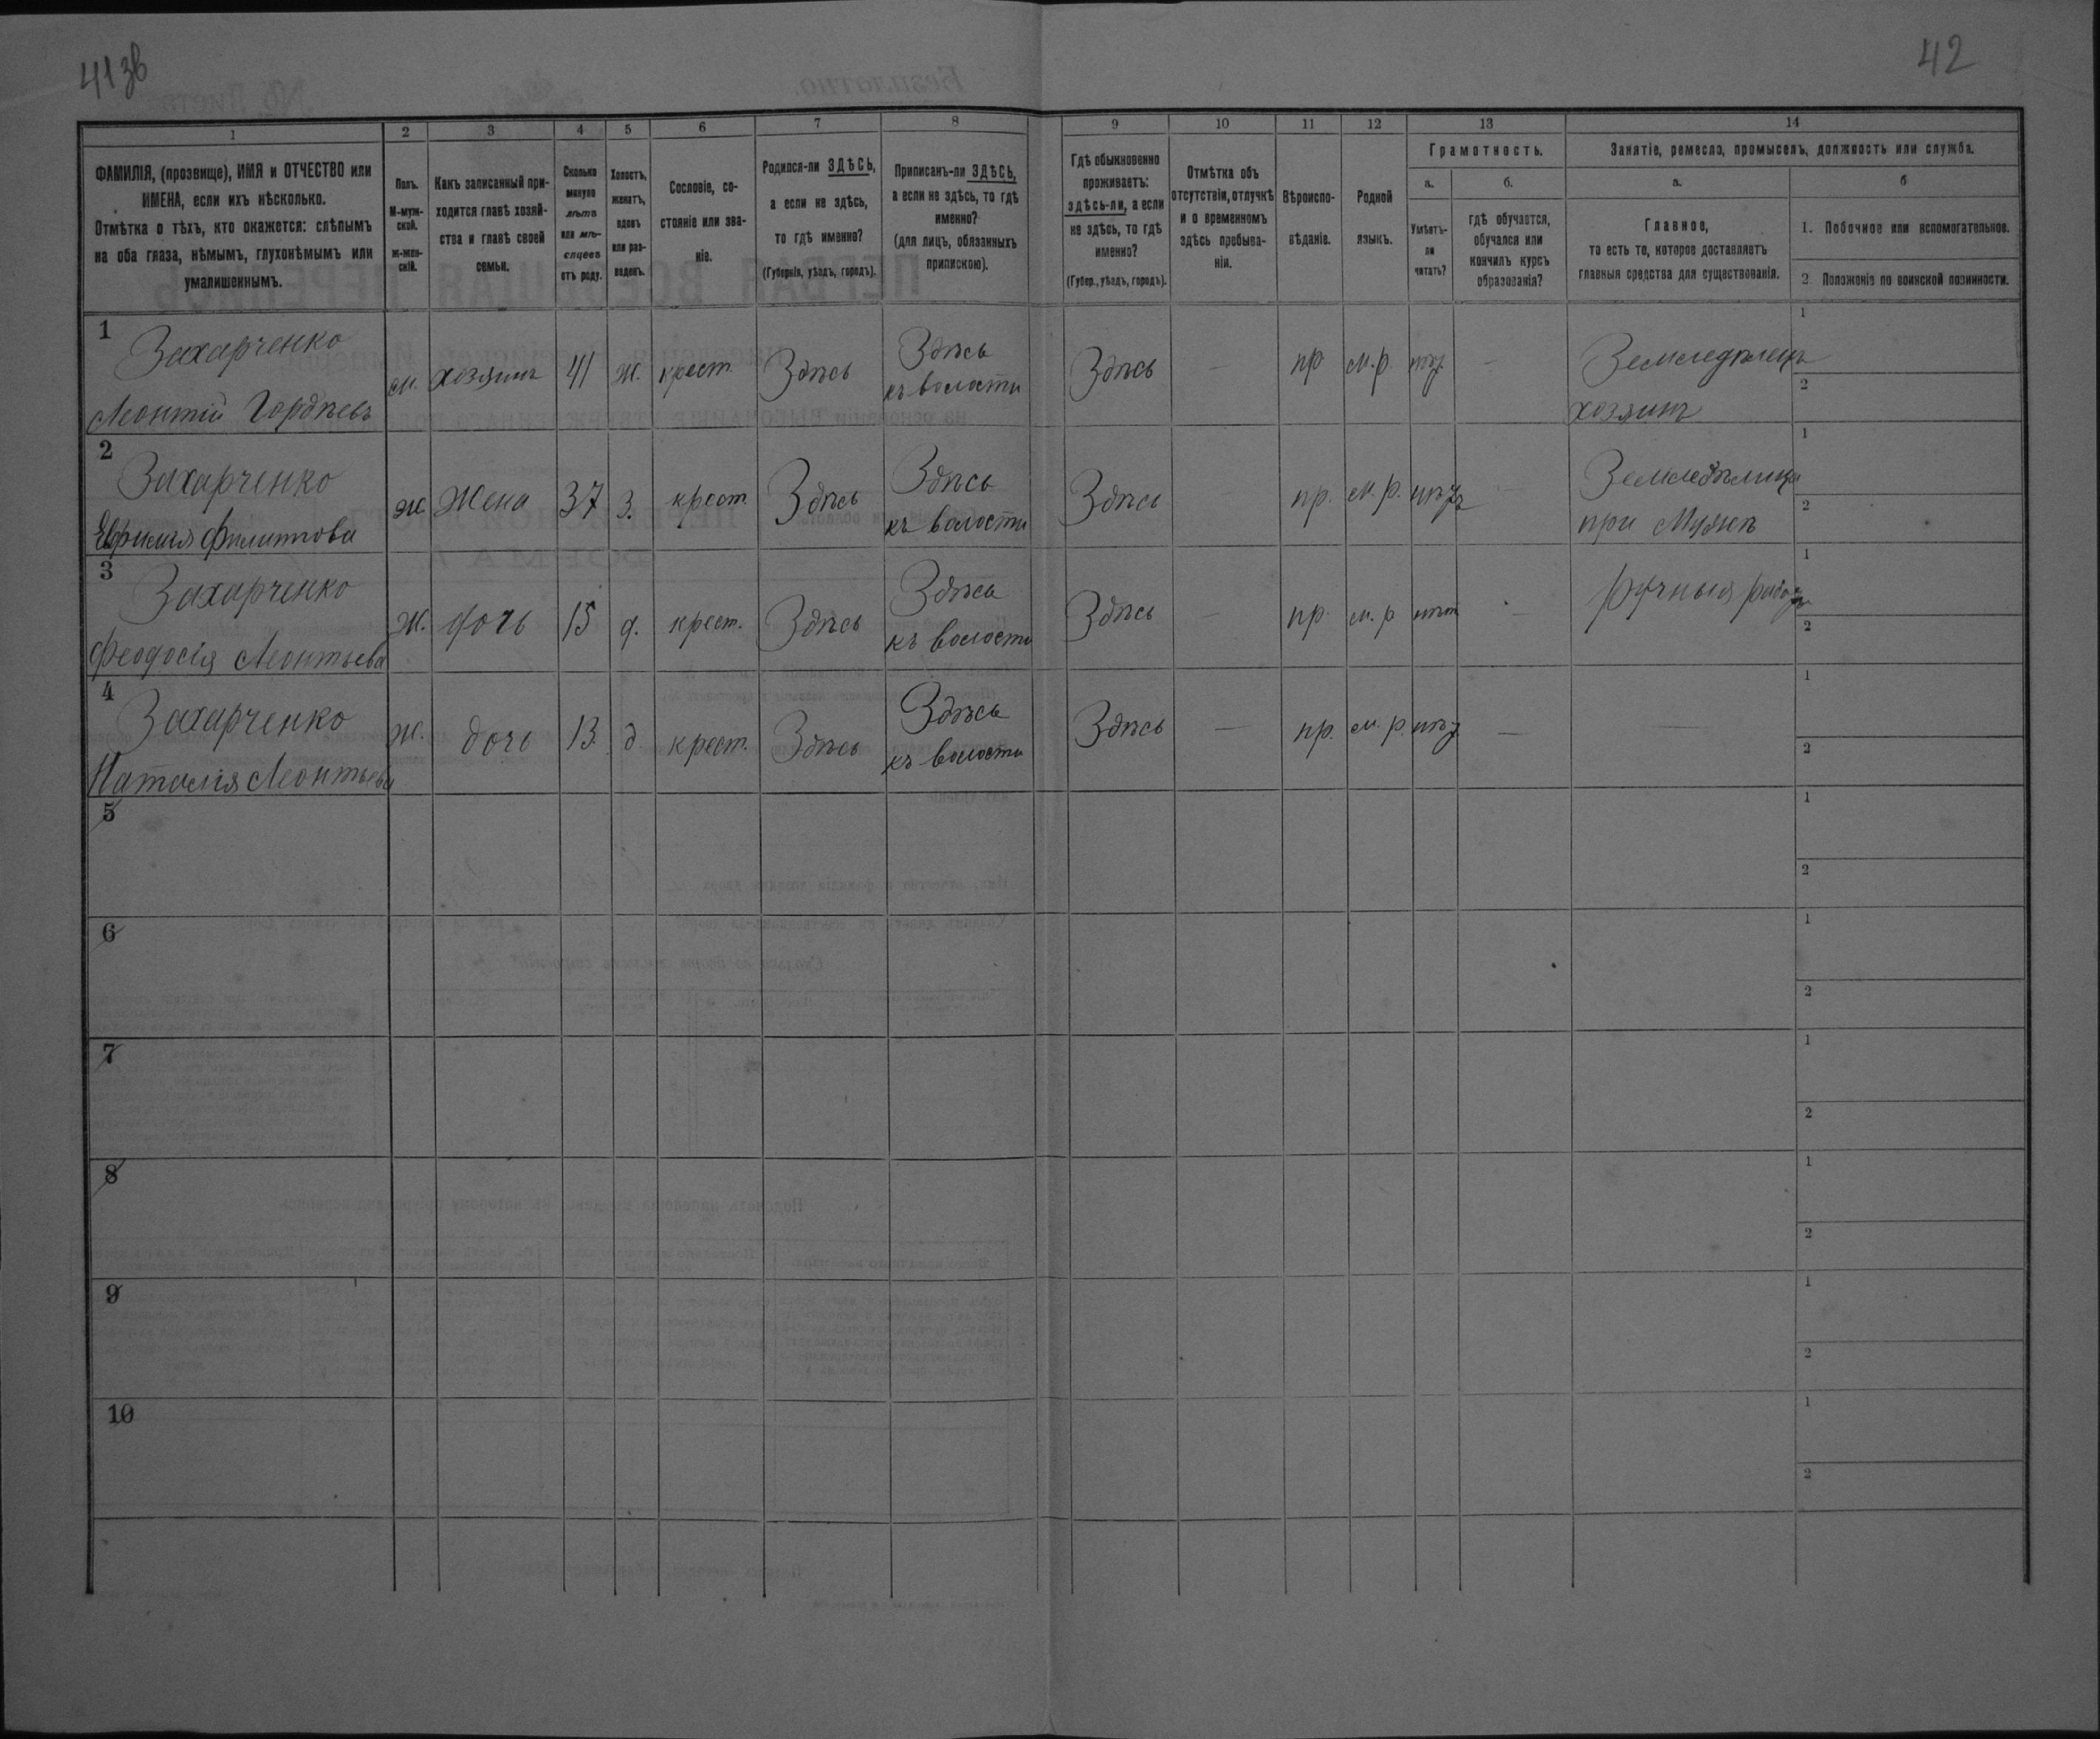 41зв
42
1 2 3 4 5 6 7 8 9 10 11 12 13 14
ФАМИЛІЯ, (прозвище), ИМЯ и ОТЧЕСТВО или
ИМЕНА, если ихъ нѣсколько.
Отмѣтка о тѣхъ, кто окажется: слѣпымъ
на оба глаза, нѣмымъ, глухонѣмымъ или
умалишеннымъ.
Полъ.
М-муж-
ской.
ж-жен-
скій.
Какъ записанный при-
ходится главѣ хозяй-
ства и главѣ своей
семьи.
Сколько
минуло
лѣтъ
или мѣ-
сяцевъ
отъ роду.
Холостъ,
женатъ,
вдовъ
или раз-
веденъ.
Сословіе, со-
стояніе или зва-
ніе.
Родился-ли ЗДѢСЬ,
а если не здѣсь,
то гдѣ именно?
(Губернія, уѣздъ, городъ).
Приписанъ-ли ЗДѢСЬ,
а если не здѣсь, то гдѣ
именно?
(для лицъ, обязанныхъ
припискою).
Гдѣ обыкновенно
проживаетъ:
здѣсь-ли, а если
не здѣсь, то гдѣ
именно?
(Губер., уѣздъ, городъ).
Отмѣтка объ
отсутствіи, отлучкѣ
и о временномъ
здѣсь пребыва-
ніи.
Вѣроиспо-
вѣданіе.
Родной
языкъ.
Грамотность.
а.
Умѣетъ-
ли
читать?
б.
гдѣ обучается,
обучался или
кончилъ курсъ
образованія?
Занятіе, ремесло, промыселъ, должность или служба.
а.
Главное,
то есть то, которое доставляетъ
главныя средства для существованія.
б
1. Побочное или вспомогательное.
2 Положеніе по воинской повинности.
1 Захарченко
Леонтій Гордѣевъ
м. хозяинъ 41 ж. крест. Здѣсь
Здѣсь
къ волости
Здѣсь — пр м.р. —
Земледѣлецъ
хозяинъ
1
2
2 Захарченко
Евфимія Филиппова
ж. Жена 37 з. крест. Здѣсь
Здѣсь
къ волости
Здѣсь пр. м.р.
при Мужѣ
1
2
3 Захарченко
Феодосія Леонтьева
ж. дочь 15 д. крест. Здѣсь
Здѣсь
къ волости
Здѣсь — пр. м.р нѣт —
1
2
4 Захарченко
Наталія Леонтьева
ж. дочь 13. д. крест. Здѣсь
Здѣсь
къ волости
Здѣсь — пр. м.р. — —
1
2
5
1
2
6
1
2
7
1
2
8
1
2
9
1
2
10
1
2